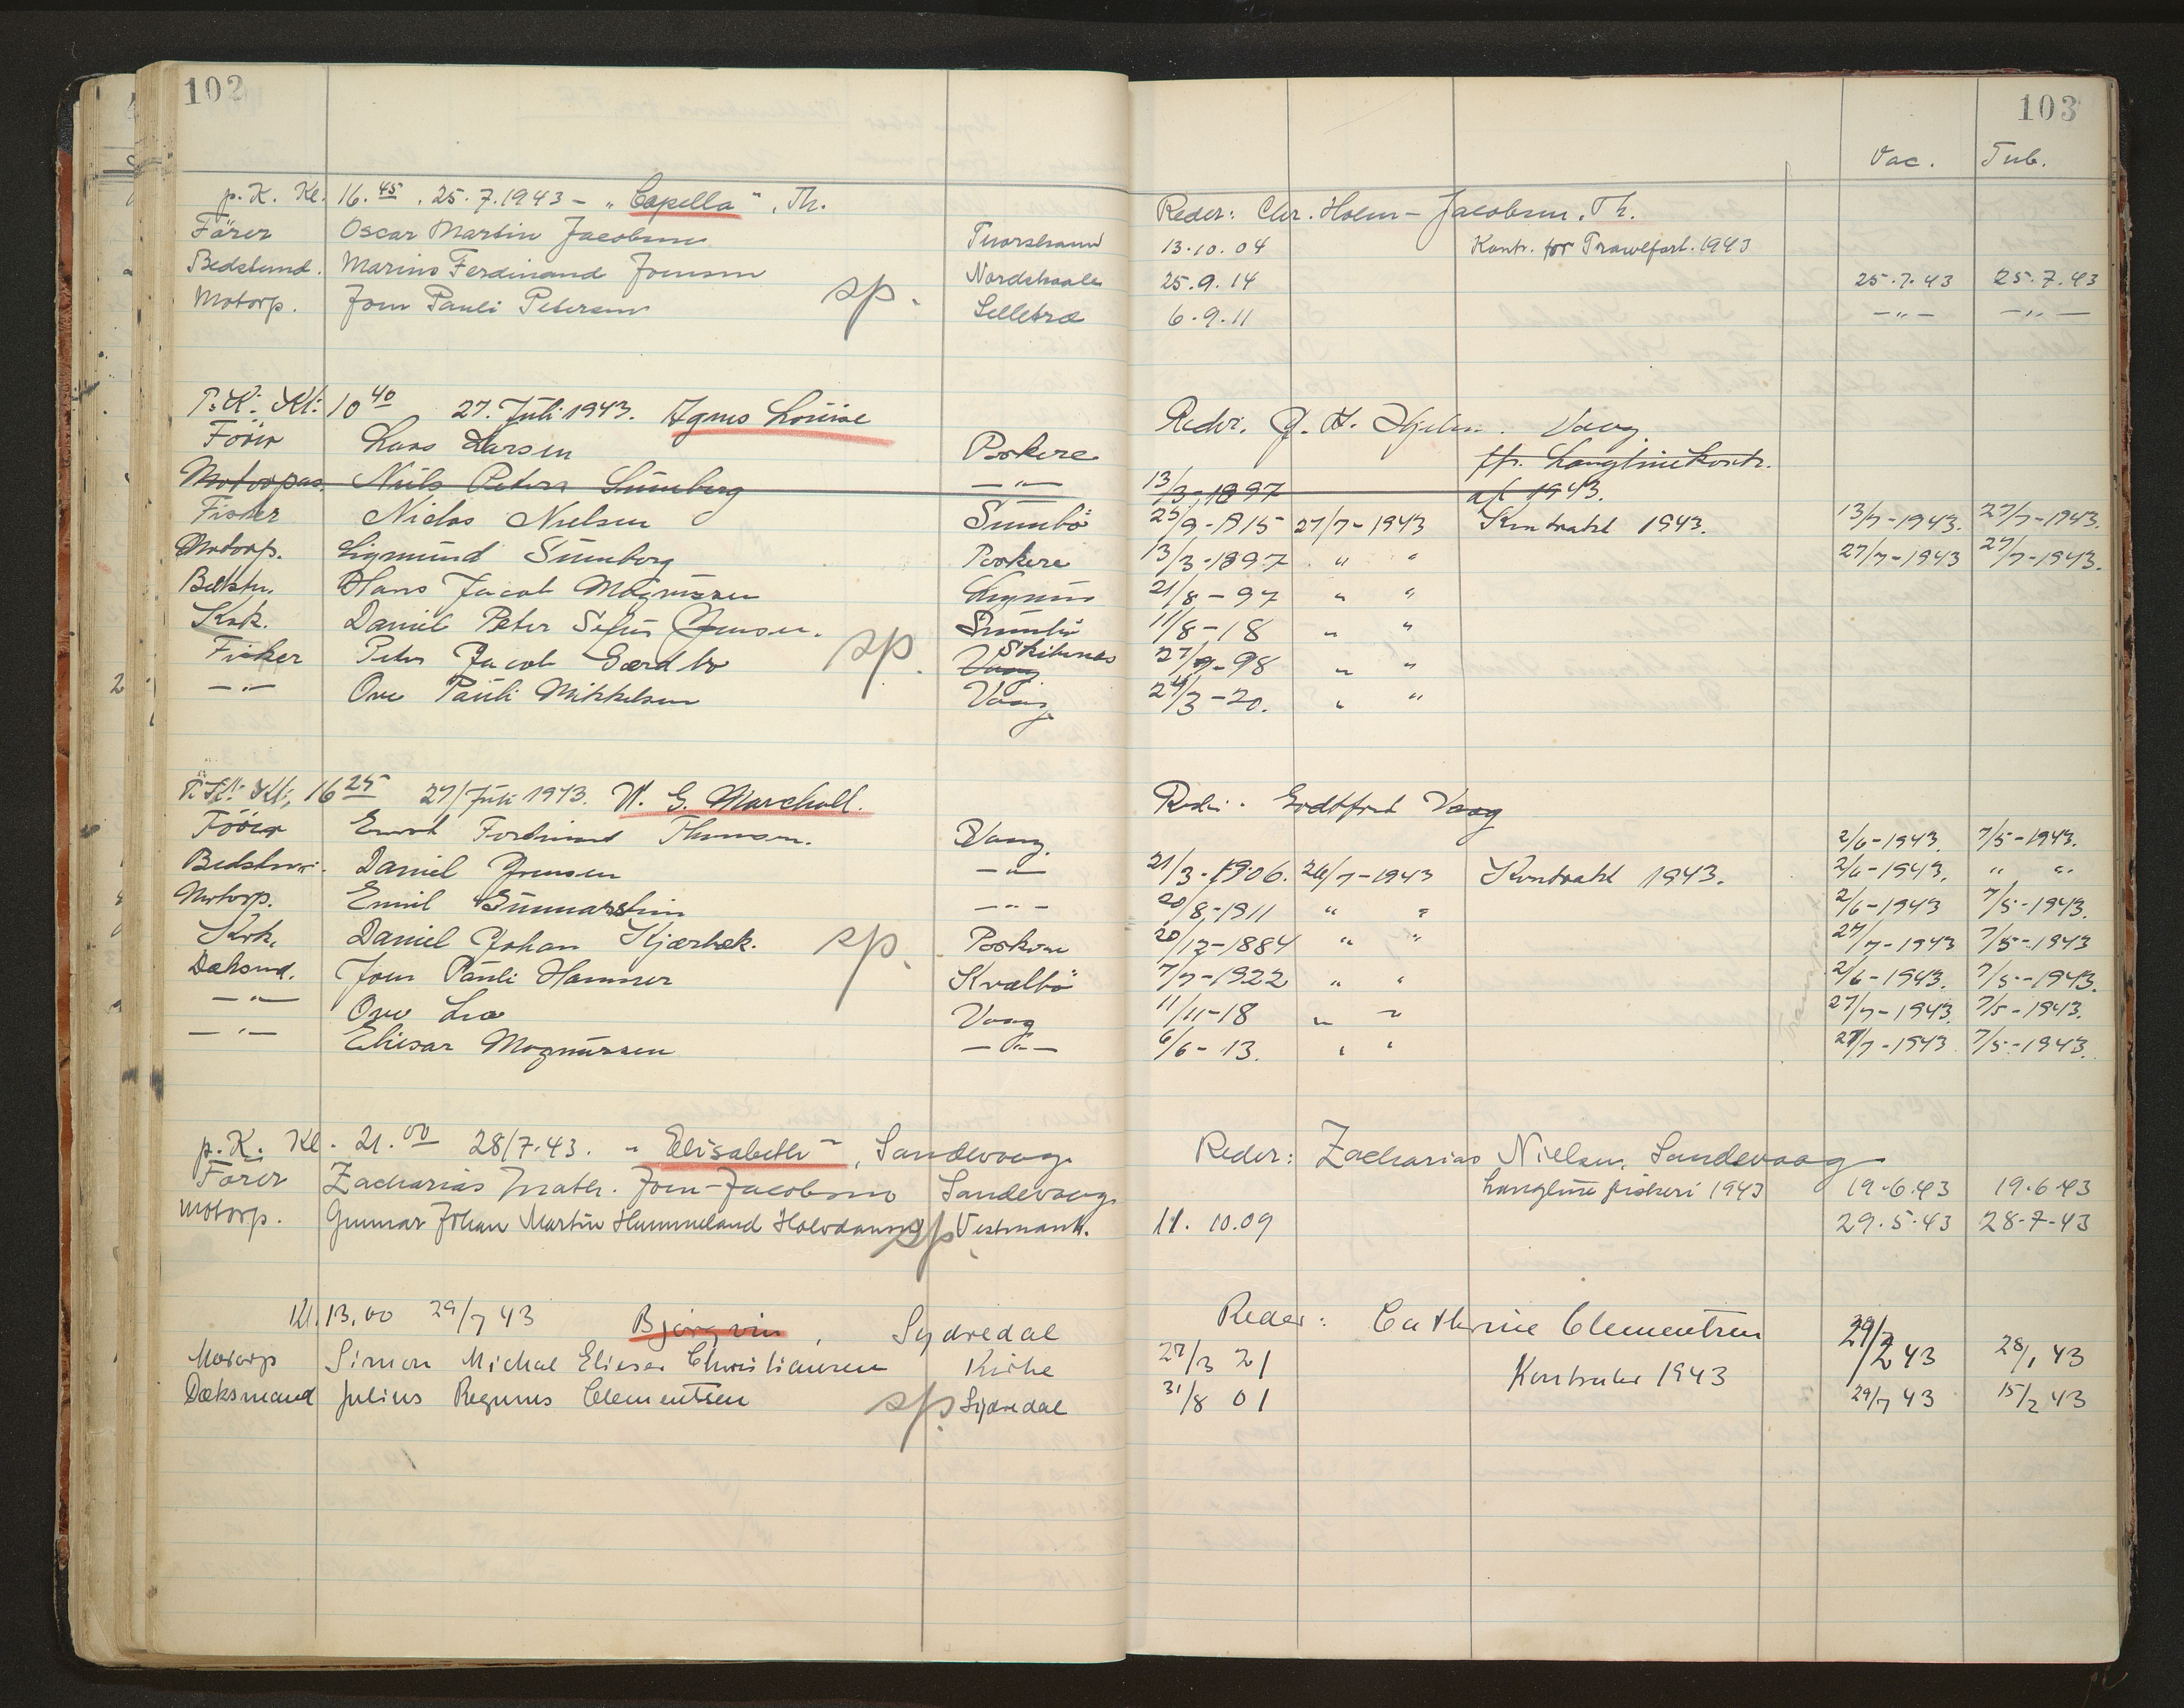 102
p. K. Kl. 16.45. 25.7.1943 - "Capella", Th.
Förer Oscar Martin Jacobsen Thorshavn
Bedstmd. Marius Ferdinand Joensen Nordskaale
Motorp. Joen Pauli Petersen sp. Selletræ
P. K. Kl: 10 40 27. Juli 1943. Agnes Louise
Förer Lars Larsen Porkere
Motorpas. Niels Peter Sumberg —"—
Fisker Niclas Nielsen Sumbö
Motorp. Sigmund Sumberg Porkere
Bedstm. Hans Jacob Magnussen
Kok. Daniel Peter Sofus Joensen. Sumbö
Fisker Peter Jacob Gærdbo sp. Vaag
—"— Ove Pauli Mikkelsen Vaag
P. K. Kl; 16 25 27/Juli 1943. W. G. Marshall.
Förer Ferdinand Thomsen. Vaag.
Bedstm. Daniel Joensen —"—
Motorp. Emil Gunnarstein —"—
Kok. Daniel Johan Kjærbæk. sp. Porkere
Dæksmd. Joen Pauli Hammer Kvalbö
—"— Ove Vaag
—"— Eliesar Magnussen —"—
p. K. Kl. 21.00 28/7.43. "Elisabeth", Sandevaag
Förer Zacharias Math. Joen-Jacobsen Sandevaag
Motorp. Gunnar Johan Martin Hummeland Holvdanung sp Vestmanh.
Kl. 13,00 29/7 43 Bjørgvin, Sydredal
Motorp Simon Michal Elieser Christiansen Kirke
Dæksmand Julius Regnus Clementsen sp. Sydredal
103
Vac. Tub.
Reder: Chr. Holm-Jacobsen, Th.
13.10.04 Kontr. for Trawlfart. 1943
25.9.14 25.7.43 25.7.43
6.9.11 —"— —"—
Reder. Vaag.
fr. Langlinekontr.
13/3-1897 af 1943.
25/9-1915 27/7-1943 Kontrakt 1943. 13/7-1943. 27/7-1943.
13/3-1897 " " 27/7-1943 27/7-1943.
21/8-97 " "
11/8-18 " "
27/9-98 " "
24/3-20. " "
Reder. Godtfred Vaag
2/6-1943. 7/5-1943.
21/3-1906. 26/7-1943 Kontrakt 1943. 2/6-1943. " "
20/8-1911 " " 2/6-1943 7/5-1943.
20/12-1884 " " 27/7-1943 7/5-1943
7/7-1922 " " 2/6-1943. 7/5-1943.
11/11-18 " " 27/7-1943. 7/5-1943.
6/6-13. " " 27/7-1943 7/5-1943.
Reder: Zacharias Nielsen, Sandevaag
Langline fiskeri 1943 19.6.43 19.6.43
11.10.09 29.5.43 28-7-43
Reder: Cathrine Clementsen
27/3 21 Kontrakt 1943 29/7 43 28/1 43
31/8 01 29/7 43 15/2 43